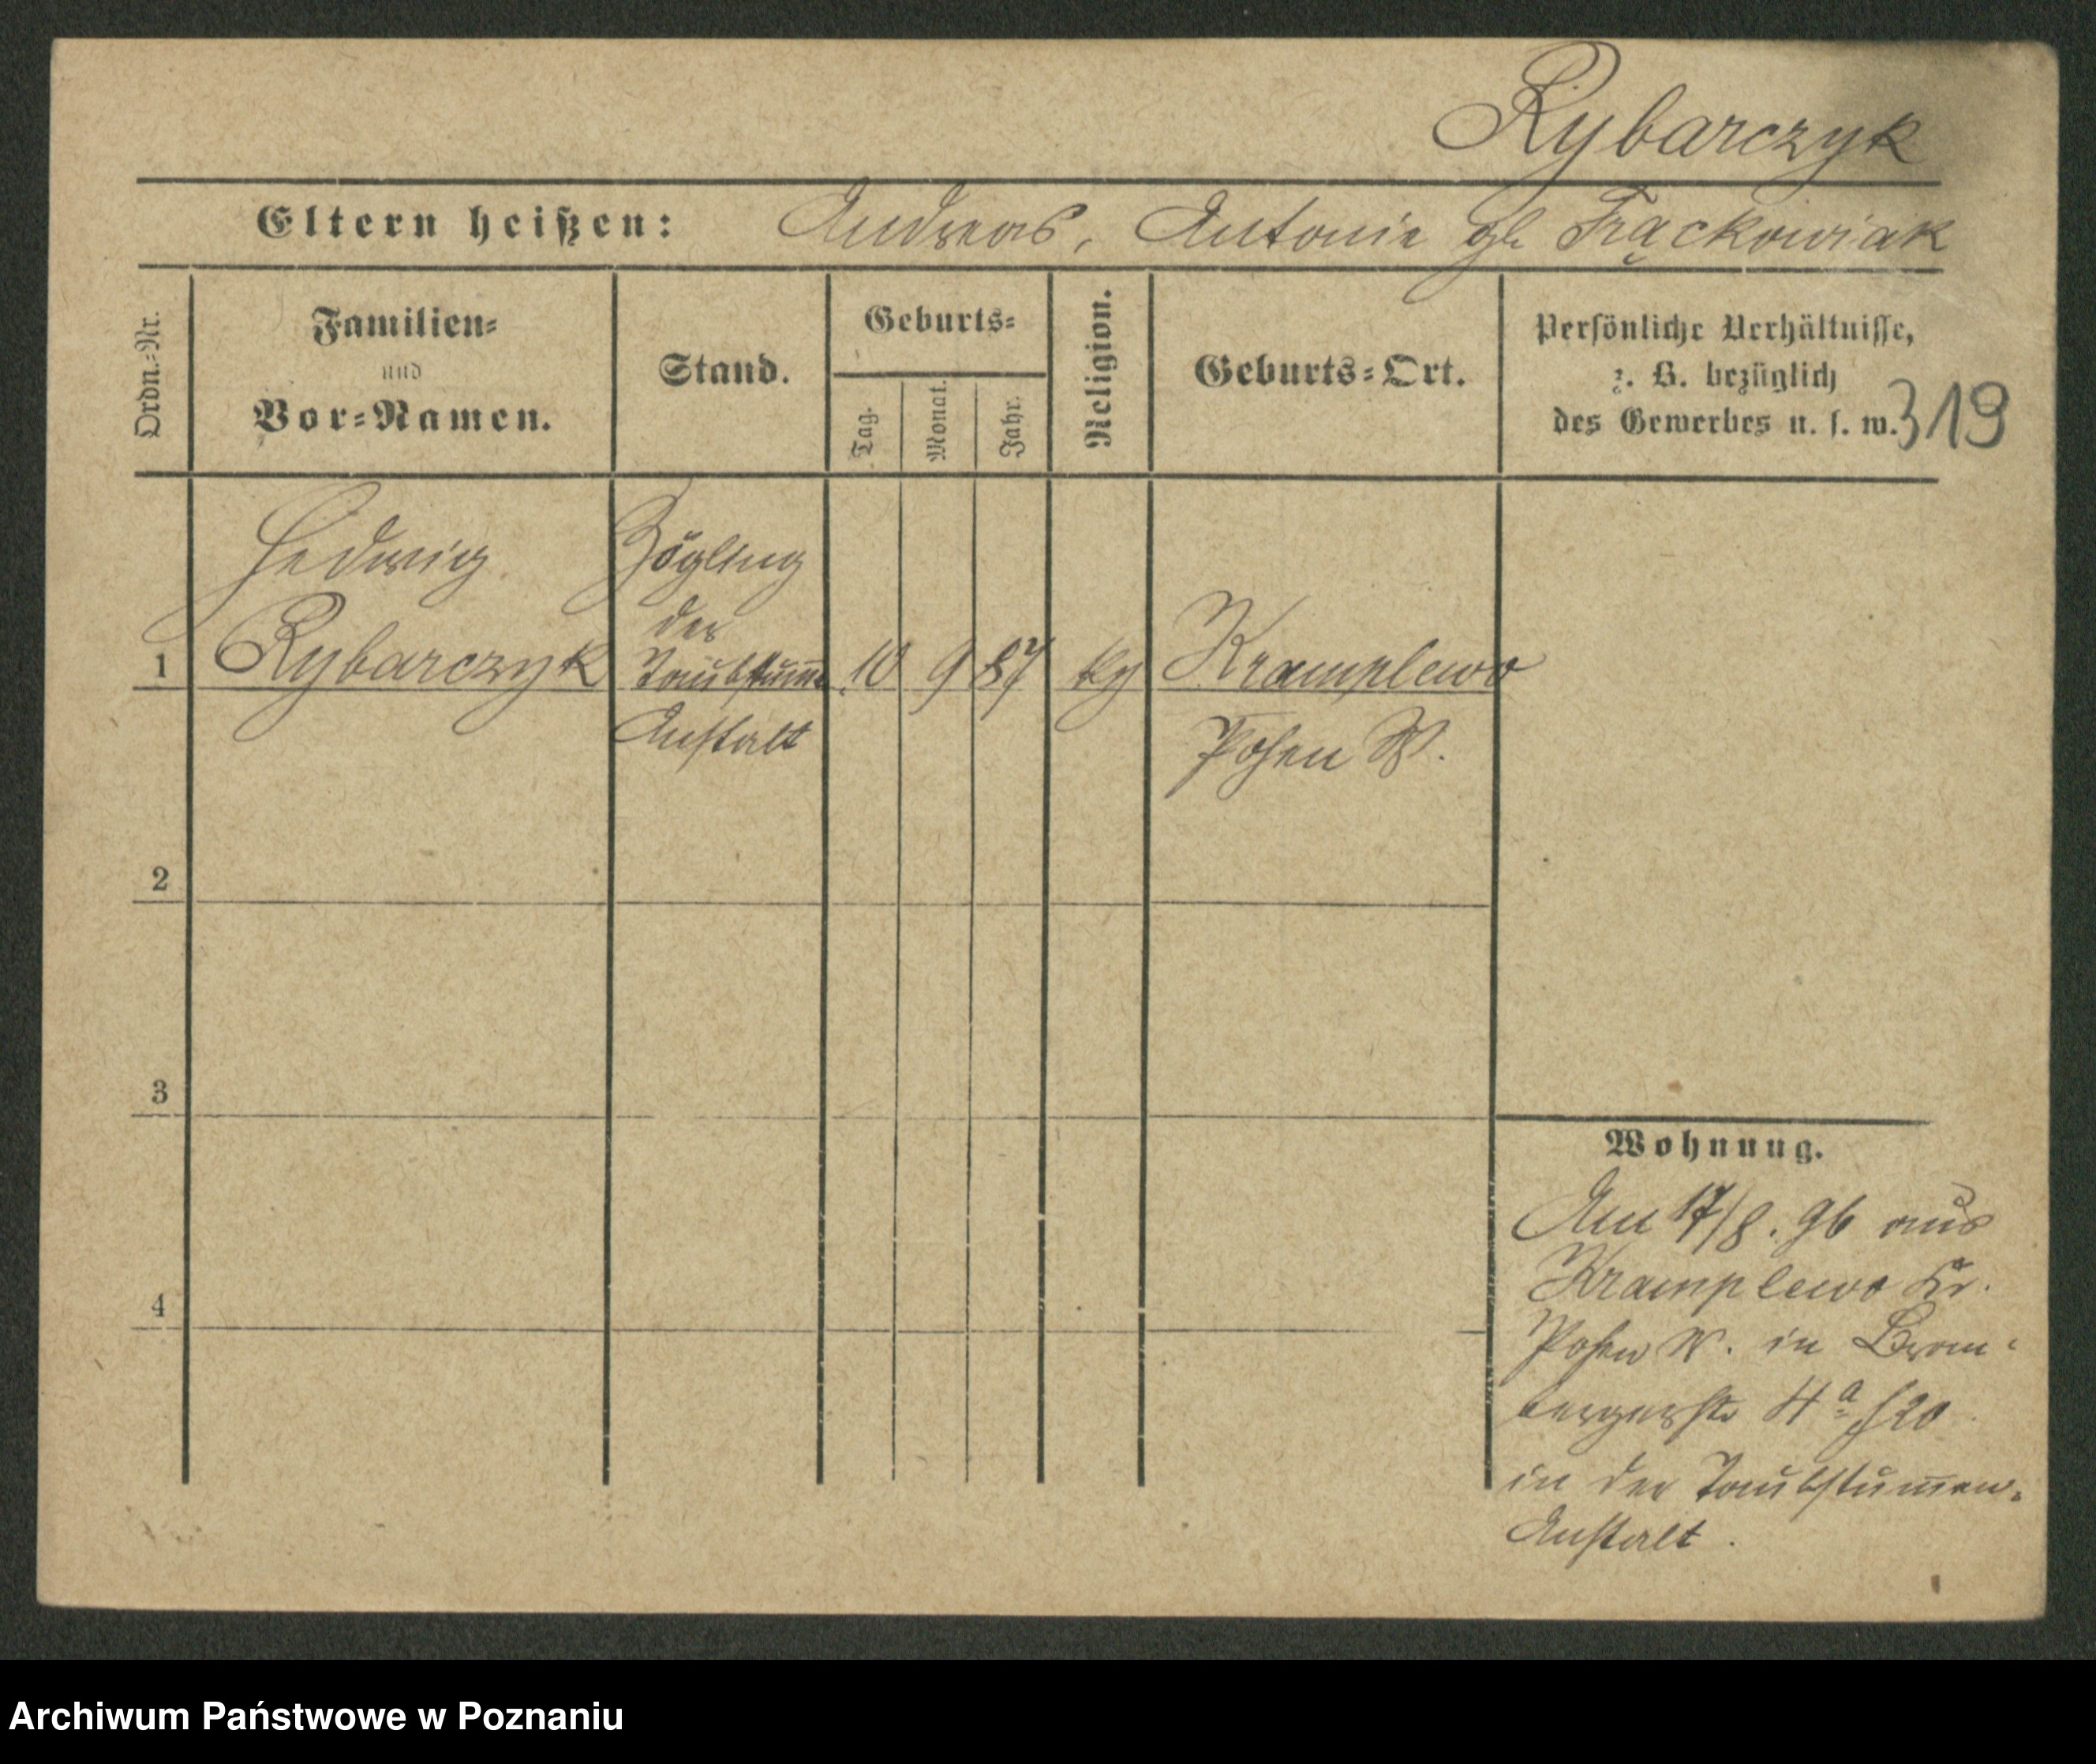 Rybarczyk
Eltern heißen: Andreas, Antonie gb Frąckowiak
Ordn.-Nr.
Familien-
und
Vor-Namen.
Stand.
Geburts-
Tag.
Monat.
Jahr.
Religion.
Geburts-Ort.
Persönliche Verhältnisse,
z. B. bezüglich
des Gewerbes u. s. w.
319
Hedwig
Rybarczyk
Zögling
der
Taubstumm̄
Anstalt
1
10 9 87
Kramplewo
Posen W.
2
3
4
Wohnung.
Am 17/8. 96 aus
Kramplewo Kr.
Posen W. in Brom-
bergerstr 4a
in der Taubstum̄en-
Anstalt.
Archiwum Państwowe w Poznaniu